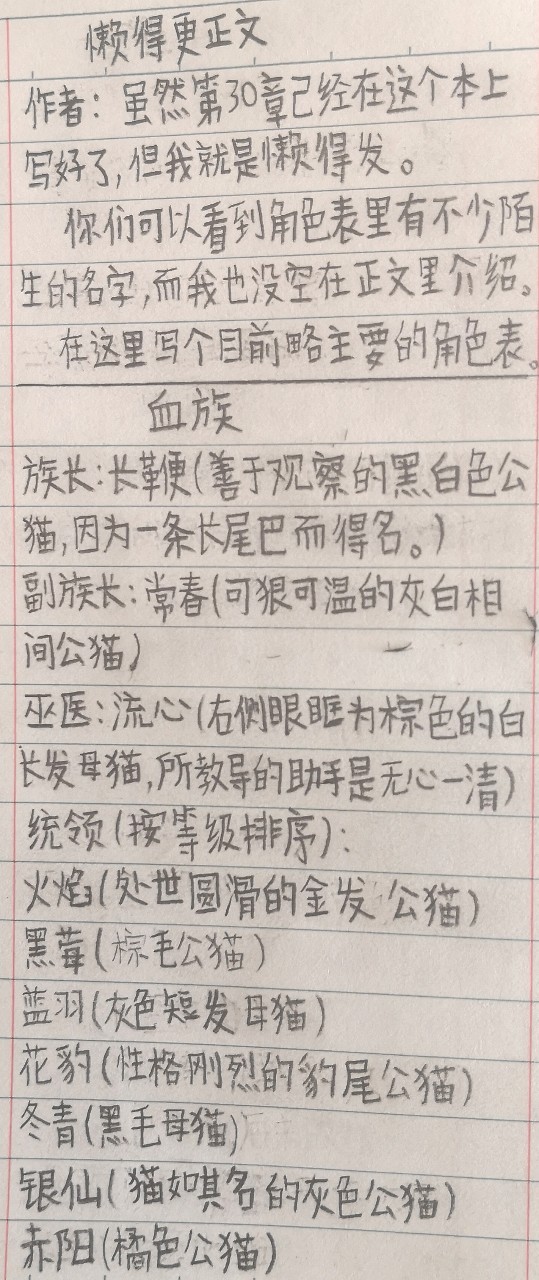 懒得更正文
作者：虽然第30章已经在这个本上
写好了，但我就是懒得发。
你们可以看到角色表里有不少陌
生的名字，而我也没空在正文里介绍。
在这里写个目前略主要的角色表。
血族
族长：长鞭（善于观察的黑白色公
猫，因为一条长尾巴而得名。）
副族长：常春（可狠可温的灰白相
间公猫）
巫医：流心（右侧眼眶为棕色的白
长发母猫，所教导的助手是无心一清）
统领（按等级排序）：
火焰（处世圆滑的金发公猫）
黑莓（棕毛公猫）
蓝羽（灰色短发母猫）
花豹（性格刚烈的豹尾公猫）
冬青（黑毛母猫）
银仙（猫如其名的灰色公猫）
赤阳（橘色公猫）